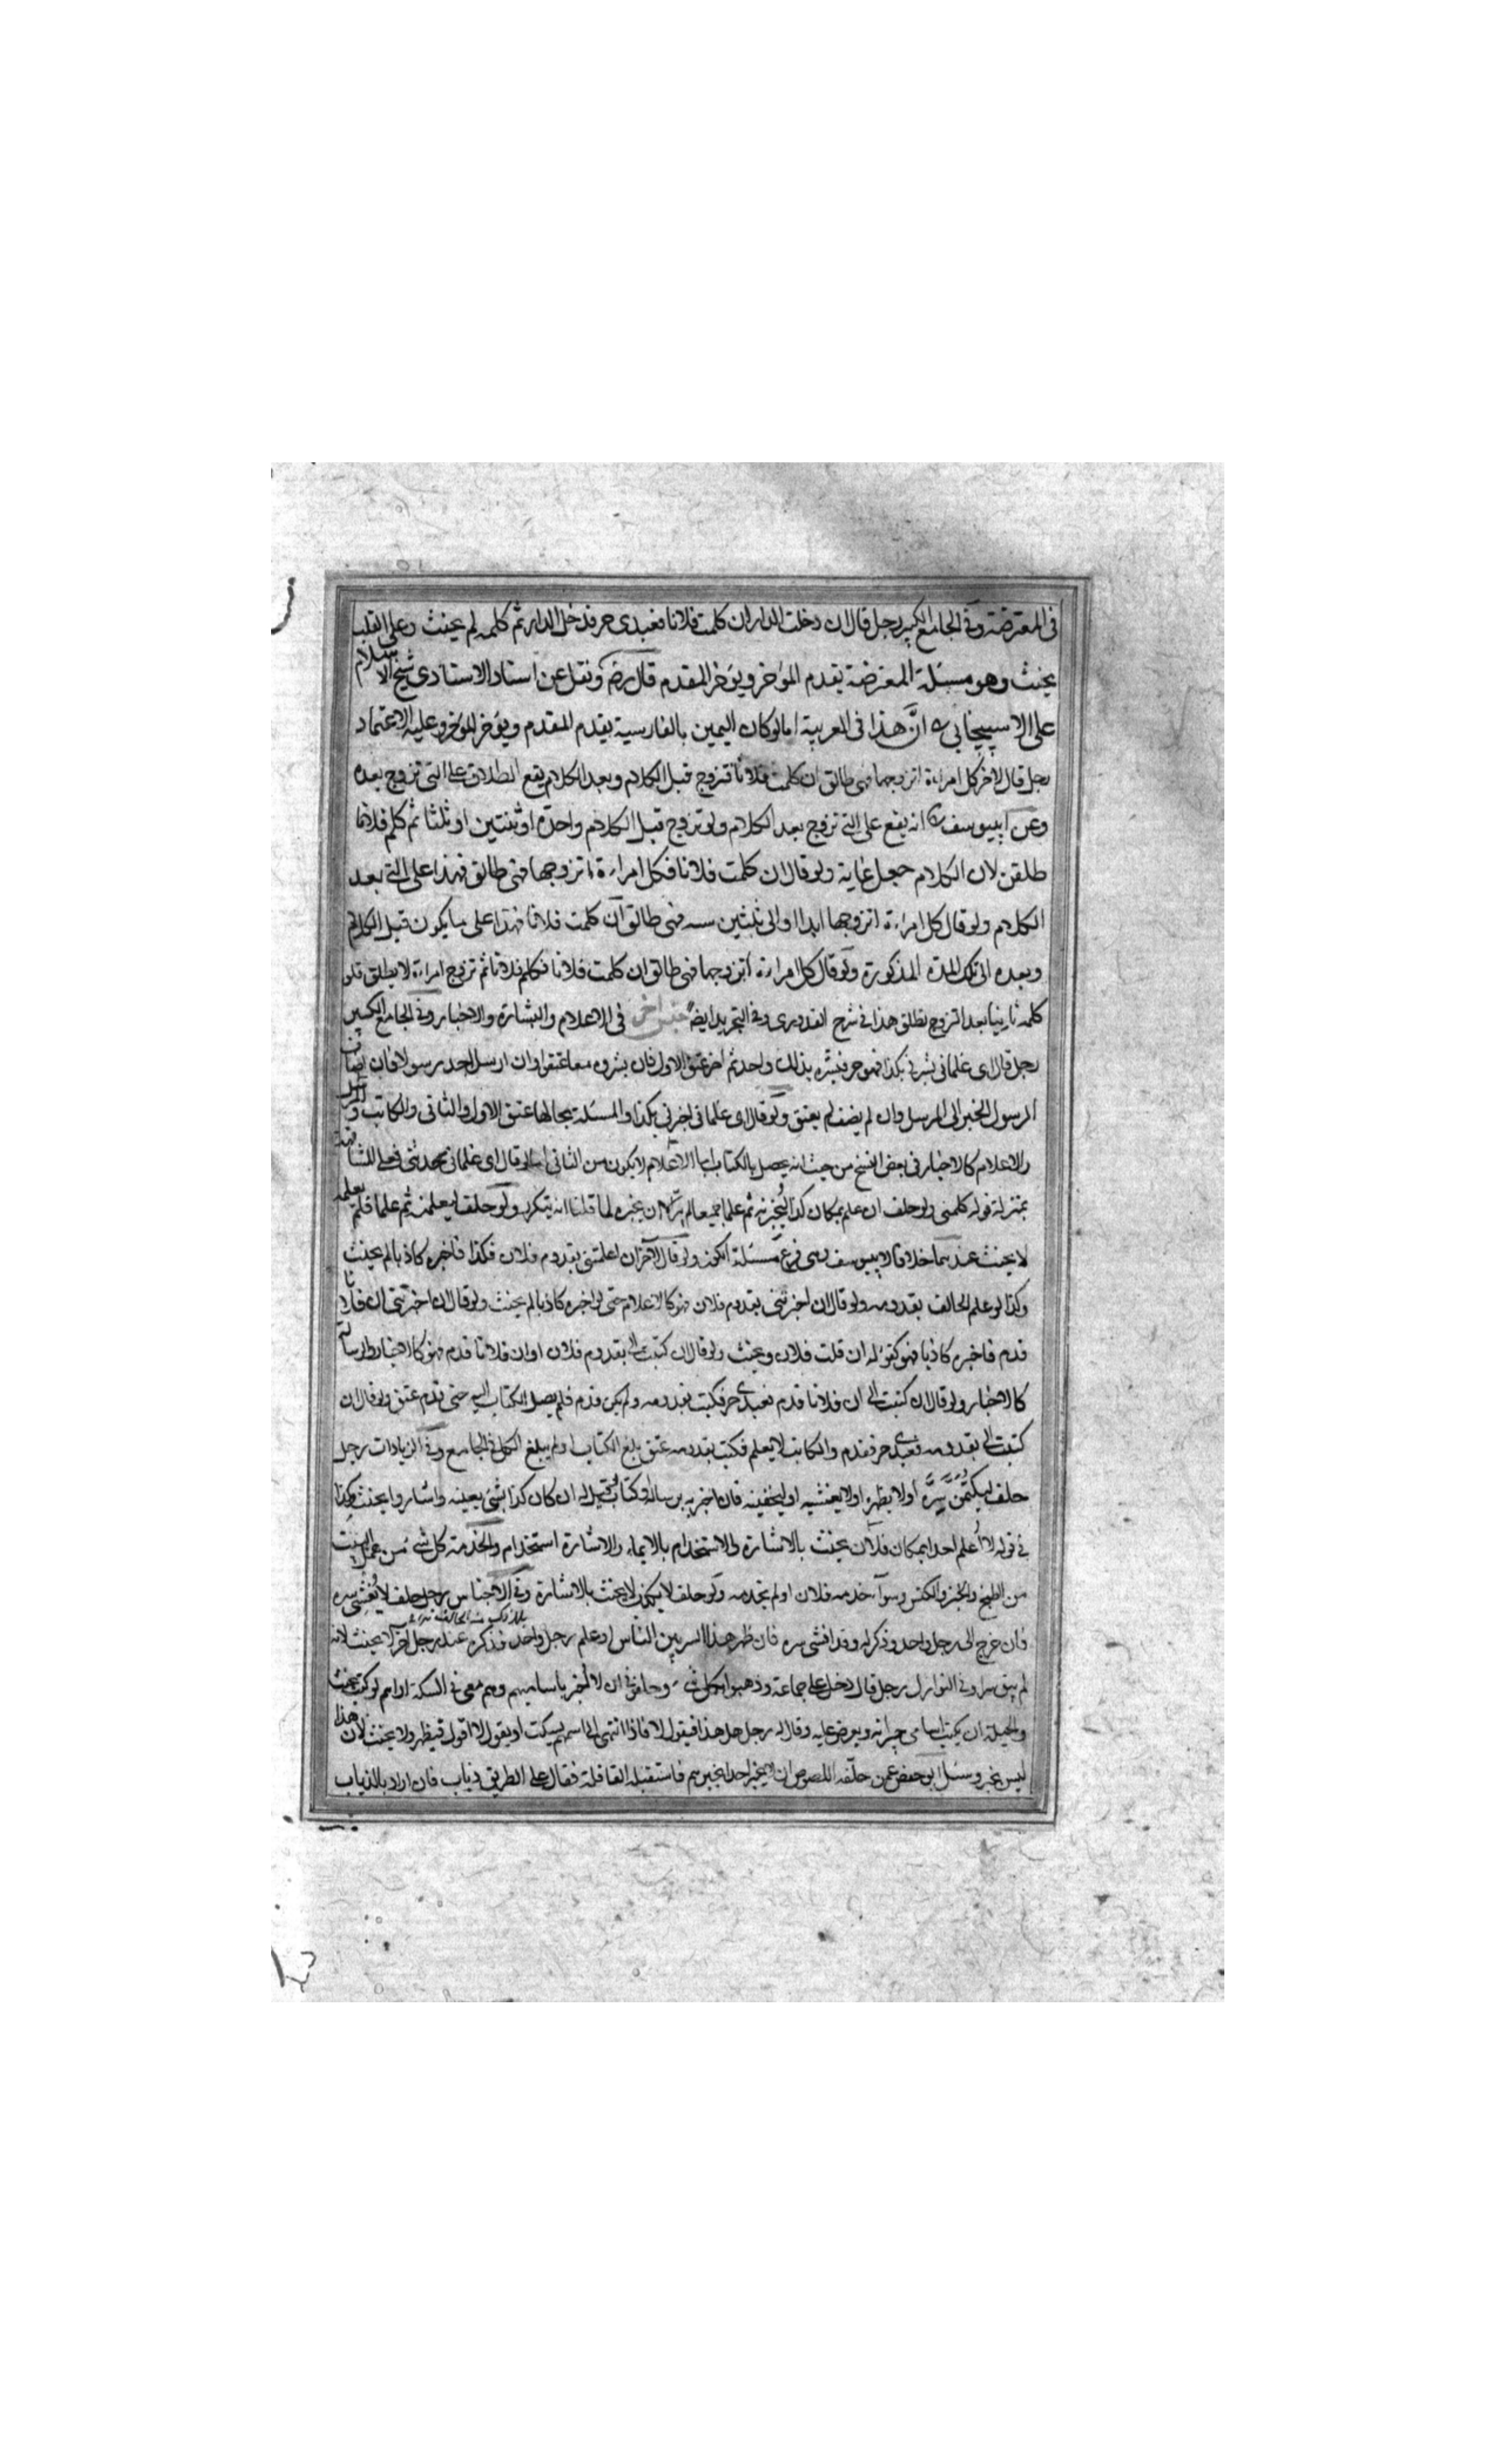 في المعترضة وفي الجامع الكبير رجل قال ان دخلت الدار ان كلمت فلانا فعبدي حر فدخل الدار ثم كلمه لم يحنث وعلى القلب
يحنث وهو مسئلة المعترضة يقدم المؤخر ويؤخر المقدم قال رضه ونقل عن استاد الاستادي شيخ الاسلام
على الاسبيجابي انَّ هذا في العربية اما لو كان اليمين بالفارسية يقدم المقدم ويؤخر المؤخر وعليه الاعتماد
رجل قال لاخر كل امراءة اتزوجها فهي طالق ان كلمت فلانا فتزوج قبل الكلام وبعد الكلام يقع الطلاق على التي تزوج بعده
وعن ابييوسف انه يقع على التي تزوج بعد الكلام ولو تزوج قبل الكلام واحدة او ثنتين او ثلثا ثم كلم فلانا
طلقن لان الكلام جعل غاية ولو قال ان كلمت فلانا فكل امراءة اتزوجها فهي طالق فهذا على التي بعد
الكلام ولو قال كل امراءة اتزوجها ابدا او الى ثلثين سنه فهي طالق ان كلمت فلانا فهذا على ما يكون قبل الكلام
وبعده الى تلك المدة المذكورة ولو قال كل امراءة اتزوجها فهي طالق ان كلمت فلانا فكلم فلانا ثم تزوج امراءة لا يطلق فلو
كلمه ثانيا بعد التزوج يطلق هذا في شرح القدوري وفي التجريد ايضا جنس اخر في الاعلام والبشارة والاخبار وفي الجامع الكبير
رجل قال اي غلماني بشرني بكذا فهو حر فبشره بذلك واحد ثم اخر عتق الاول فان بشروه معا عتقوا وان ارسل احد رسولا فان اضاف
الرسول الخبر الى المرسل وان لم يضف لم يعتق ولو قال اي غلماني اخبرني بكذا والمسئلة بحالها عتق الاول والثاني والكاتب والمرسل
والاعلام كالاخبار في بعض النسخ من حيث انه يحصل بالكتاب اما الاعلام لا يكون من الثاني اما لو قال اي غلماني حدثني فعلى المشافهة
بمنزلة قوله كلمني ولو حلف ان علم بمكان كذا ليخبرنه ثم علما جميعا لم يبر الا ان يخبره لما قلنا انه يتكرر ولو حلف ليعلمنه ثم علما فلم يعلمه
لا يحنث عندهما خلافا لابييوسف وهي فرع مسئلة الكوز ولو قال لاخر ان اعلمتني بقدوم فلان فكذا فاخبره كاذبا لم يحنث
وكذا لو علم الحالف بقدومه ولو قال ان اخبرتني بقدوم فلان فهو كالاعلام حتى لو اخبره كاذبا لم يحنث ولو قال ان اخبرتني ان فلانا
قدم فاخبره كاذبا فهو كقوله ان قلت فلان ويحنث ولو قال ان كتبت الي بقدوم فلان او ان فلانا قدم فهو كالاخبار والرسالة
كالاخبار ولو قال ان كتبت الي ان فلانا قدم فعبدي حر فكتب بقدومه ولم يكن قدم فلم يصل الكتاب اليه حتى قدم عتق ولو قال ان
كتبت الي بقدومه فعبدي حر فقدم والكاتب لا يعلم فكتب بقدومه عتق بلغ الكتاب او لم يبلغ الكل في الجامع وفي الزيادات رجل
حلف ليكتمن سره او لا يظهره او لا يفشيه او ليخفينه فان اخبر به برسالة او كتاب او قيل له ان كان كذا بشئ بعينه واشار وا يحنث وكذا
في قوله لا اُعلم احدا بمكان فلان يحنث بالاشارة والاستخدام بالايماء والاشارة استخدام والخدمة كل شئ من عمل البيت
من الطبخ والخبز والكنس وسواء خدمه فلان او لم يخدمه ولو حلف لا يكلم لا يحنث بالاشارة وفي الاجناس رجل حلف لا يفشي سره
فان خرج الى رجل واحد وذكر له وقد افشى سره فان ظهر هذا السر بين الناس او علم رجل واحد فذكره عند رجل اخر لا يحنث لانه
لم يبق سرا وفي النوازل رجل قال دخل على جماعة وذهبوا بكل شئ وحلفوني ان لا اخبر باساميهم وهم معي في السكة اواهم لو كتب يحنث
والحيلة ان يكتب اسامي جيرانه ويعرض عليه وقال له رجل هل هذا فيقول لا فاذا انتهى الى اسمهم يسكت او يقول لا اقول فيظهر ولا يحنث لان هذا
ليس بخبر وسئل ابو حفص عمن حلفه اللصوص ان لا يخبر احدا بخبرهم فاستقبله القافلة فقال على الطريق ذياب فان اراد بالذياب